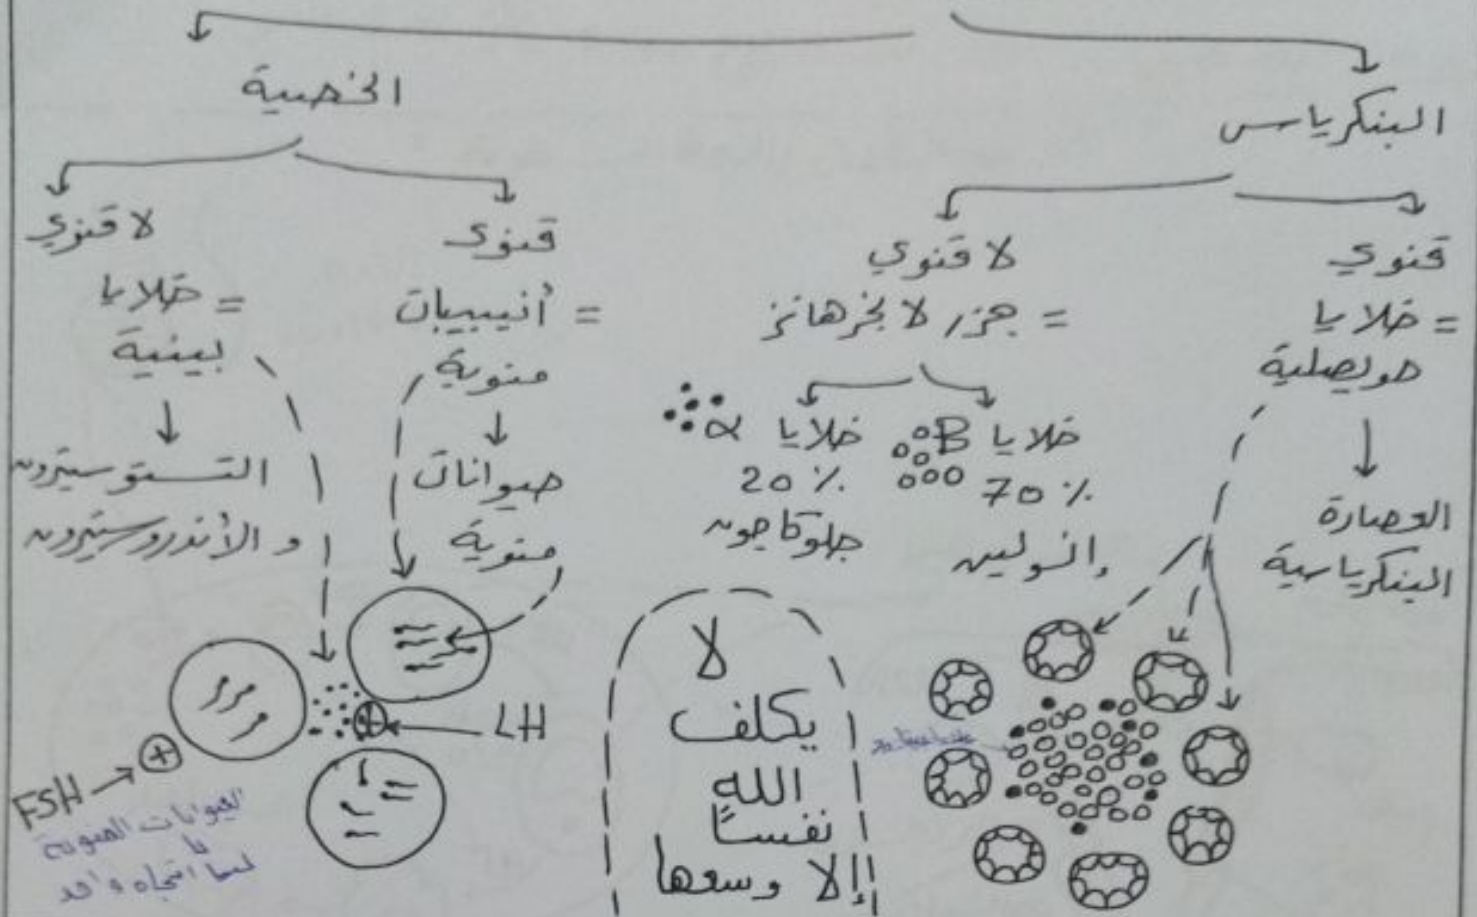 البنكرياس
قنوي
= خلايا
حويصلية
العصارة
البنكرياسية
لا قنوي
= جزر لانجرهانز
خلايا B
70 %
إنسولين
خلايا α
20 %
جلوكاجون
الخصية
قنوي
= أنيبيبات
منوية
حيوانات
منوية
لا قنوي
= خلايا
بينية
التستوستيرون
و الأندروستيرون
LH
FSH
الحيوانات المنوية
لها اتجاه واحد
لا
يكلف
الله
نفساً
إلا وسعها